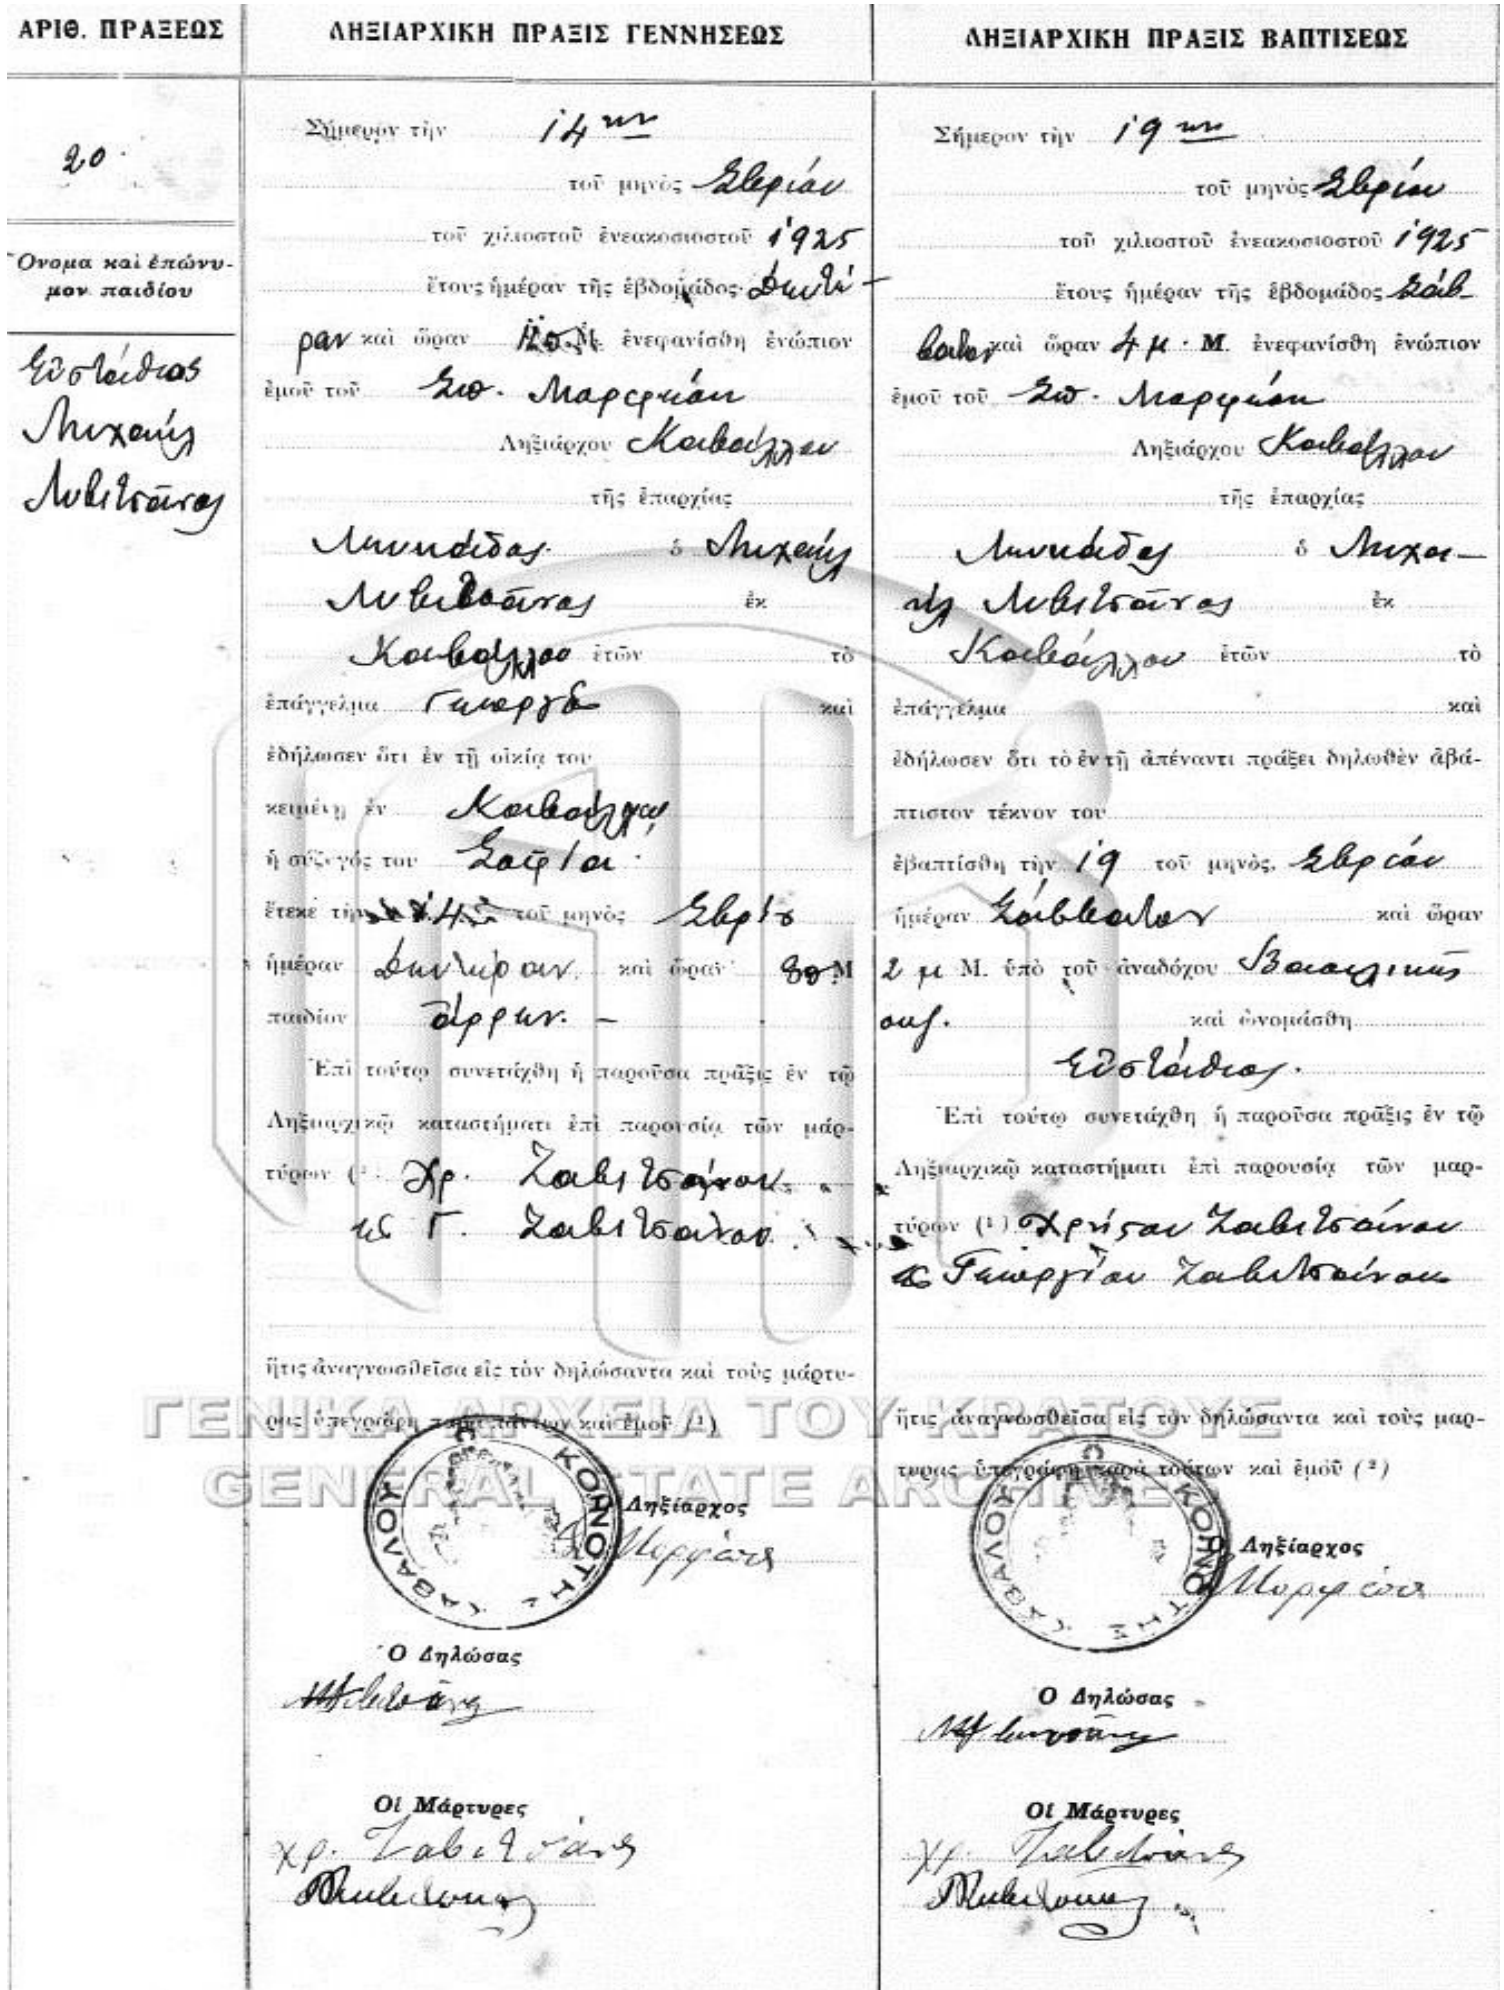 ΑΡΙΘ. ΠΡΑΞΕΩΣ
20
Ὄνομα καὶ ἐπώνυ-
μον παιδίου
Εὐστάθιος
Μιχαήλ
Λιβιτσάνος
ΛΗΞΙΑΡΧΙΚΗ ΠΡΑΞΙΣ ΓΕΝΝΗΣΕΩΣ
Σήμερον τὴν 14ην
τοῦ μηνὸς 7βρίου
τοῦ χιλιοστοῦ ἐνεακοσιοστοῦ 1925
ἔτους ἡμέραν τῆς ἑβδομάδος Δευτέ-
ραν καὶ ὥραν Μ. ἐνεφανίσθη ἐνώπιον
ἐμοῦ τοῦ Σπ.
Ληξιάρχου Καβάλλου
τῆς ἐπαρχίας
Λευκάδος ὁ Μιχαήλ
Λιβιτσάνος ἐκ
Καβάλλου ἐτῶν τὸ
ἐπάγγελμα Γεωργὸς καὶ
ἐδήλωσεν ὅτι ἐν τῇ οἰκίᾳ του
κειμένῃ ἐν Καβάλλῳ
ἡ σύζυγός του Σοφία
ἔτεκε τὴν 14 τοῦ μηνὸς 7βρίου
ἡμέραν Δευτέραν καὶ ὥραν Μ
παιδίον ἄρρεν. –
Ἐπὶ τούτῳ συνετάχθη ἡ παροῦσα πρᾶξις ἐν τῷ
Ληξιαρχικῷ καταστήματι ἐπὶ παρουσίᾳ τῶν μάρ-
τύρων (¹ Χρ. Ζαβιτσάνου
κ Γ. Ζαβιτσάνου
ἥτις ἀναγνωσθεῖσα εἰς τὸν δηλώσαντα καὶ τοὺς μάρτυ-
ρας ὑπεγράφη παρὰ πάντων καὶ ἐμοῦ (²)
ΚΟΙΝΟΤΗΣ ΚΑΒΑΛΟΥ
Ληξίαρχος
Ὁ Δηλώσας
Οἱ Μάρτυρες
Χρ. Ζαβιτσάνος
ΛΗΞΙΑΡΧΙΚΗ ΠΡΑΞΙΣ ΒΑΠΤΙΣΕΩΣ
Σήμερον τὴν 19ην
τοῦ μηνὸς 7βρίου
τοῦ χιλιοστοῦ ἐνεακοσιοστοῦ 1925
ἔτους ἡμέραν τῆς ἑβδομάδος Σάβ-
βατον καὶ ὥραν 4 μ. Μ. ἐνεφανίσθη ἐνώπιον
ἐμοῦ τοῦ Σπ.
Ληξιάρχου Καβάλλου
τῆς ἐπαρχίας
Λευκάδος ὁ Μιχα-
ήλ Λιβιτσάνος ἐκ
Καβάλλου ἐτῶν τὸ
ἐπάγγελμα καὶ
ἐδήλωσεν ὅτι τὸ ἐν τῇ ἀπέναντι πράξει δηλωθὲν ἀβά-
πτιστον τέκνον του
ἐβαπτίσθη τὴν 19 τοῦ μηνὸς 7βρίου
ἡμέραν Σάββατον καὶ ὥραν
2 μ Μ. ὑπὸ τοῦ ἀναδόχου Βασιλικῆς
καὶ ὠνομάσθη
Εὐστάθιος.
Ἐπὶ τούτῳ συνετάχθη ἡ παροῦσα πρᾶξις ἐν τῷ
Ληξιαρχικῷ καταστήματι ἐπὶ παρουσίᾳ τῶν μαρ-
τύρων (¹) Χρήστου Ζαβιτσάνου
κ Γεωργίου Ζαβιτσάνου
ἥτις ἀναγνωσθεῖσα εἰς τὸν δηλώσαντα καὶ τοὺς μαρ-
τυρας ὑπεγράφη παρὰ τούτων καὶ ἐμοῦ (²)
ΚΟΙΝΟΤΗΣ ΚΑΒΑΛΟΥ
Ὁ Ληξίαρχος
Ὁ Δηλώσας
Οἱ Μάρτυρες
Χρ. Ζαβιτσάνος
ΓΕΝΙΚΑ ΑΡΧΕΙΑ ΤΟΥ ΚΡΑΤΟΥΣ
GENERAL STATE ARCHIVES